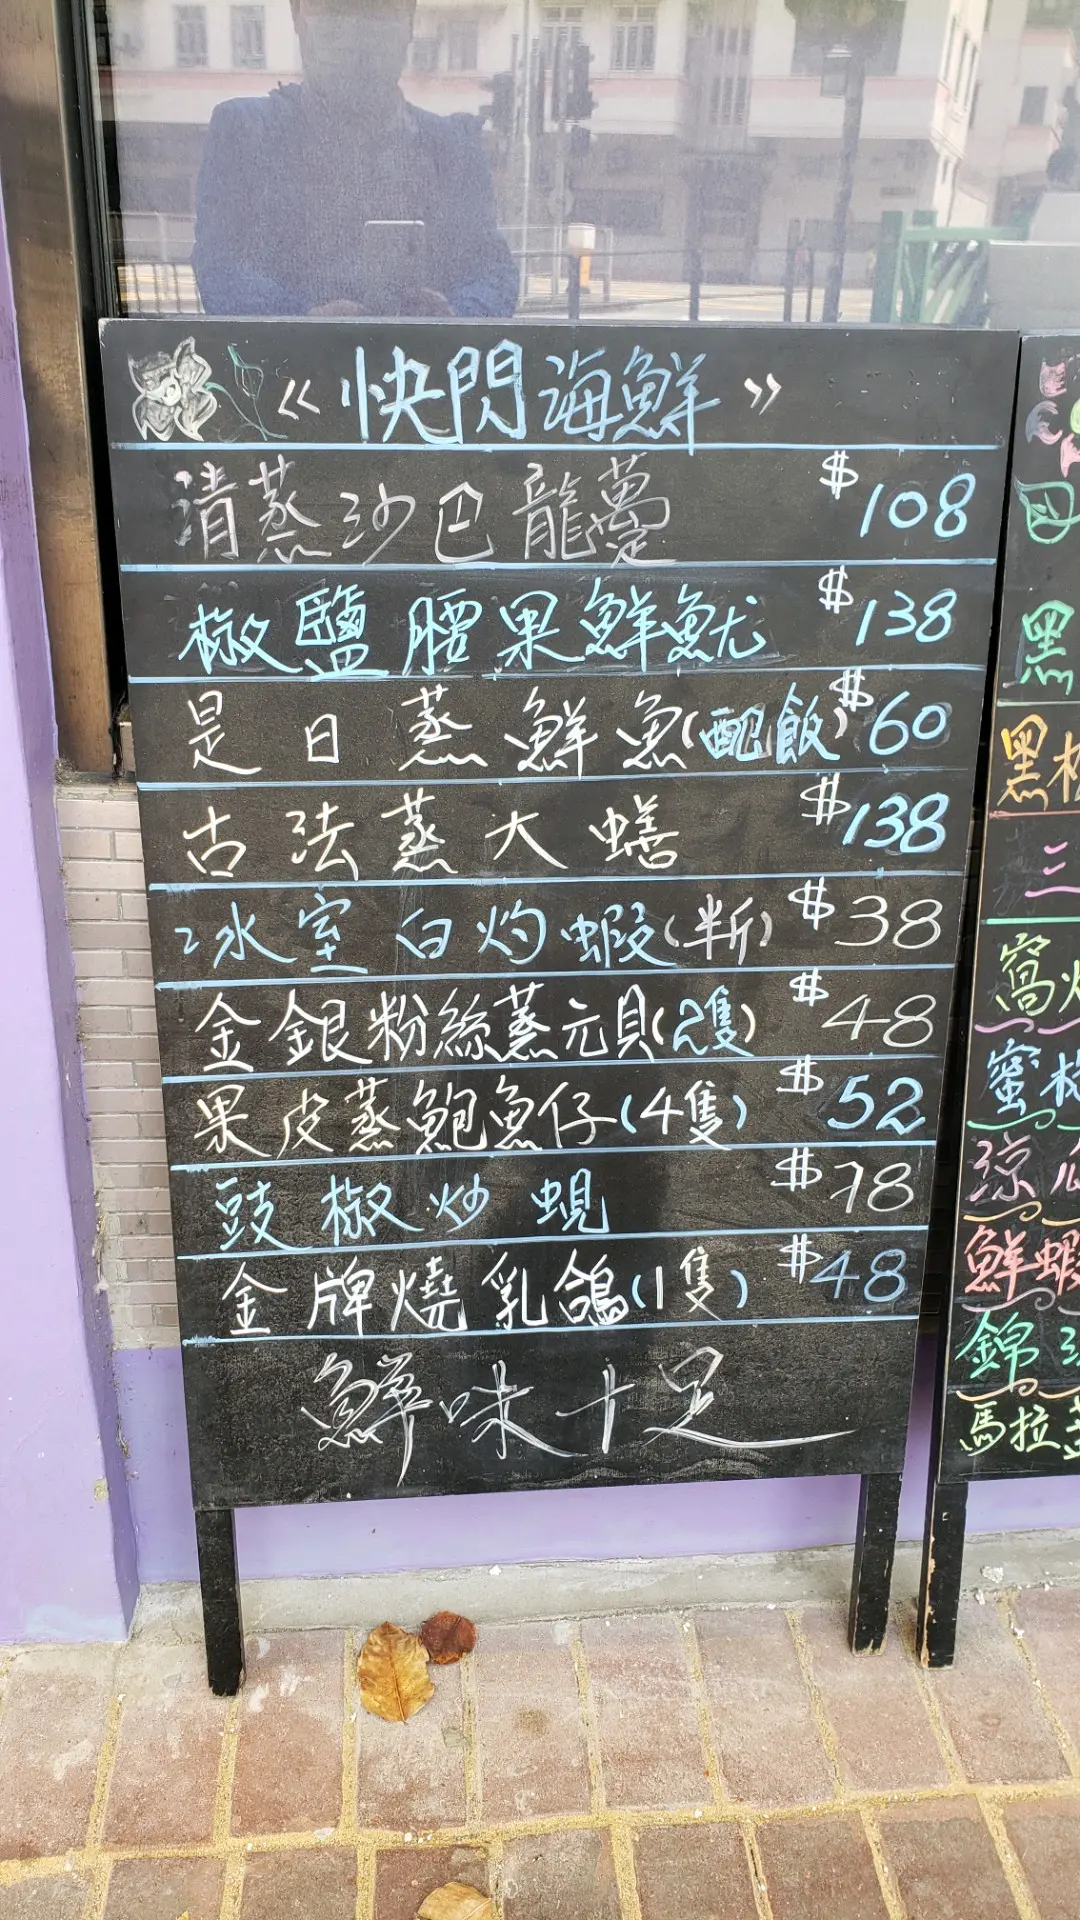 《快閃海鮮》
清蒸沙巴龍躉 $108
椒鹽腰果鮮魷 $138
是日蒸鮮魚(配飯) $60
古法蒸大蟮 $138
冰室白灼蝦(半斤) $38
金銀粉絲蒸元貝(2隻) $48
果皮蒸鮑魚仔(4隻) $52
豉椒炒蜆 $78
金牌燒乳鴿(1隻) $48
鮮味十足
黑
黑椒
三
窩
蜜
涼瓜
鮮蝦
錦
馬拉盞